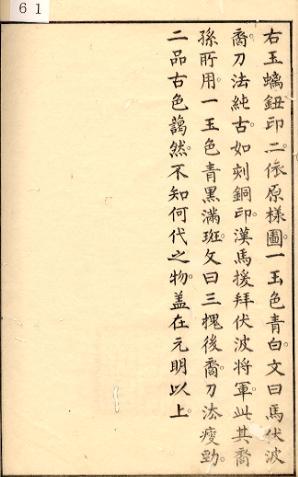 61
右玉螭鈕印。二依原様圖。一玉色青白。文曰馬伏波
裔。刀法純古。如刻銅印。漢馬援拜伏波将軍。此其裔
孫所用。一玉色青黒滿斑。文曰三槐後裔。刀法瘦勁。
二品古色藹然。不知何代之物。盖在元明以上。